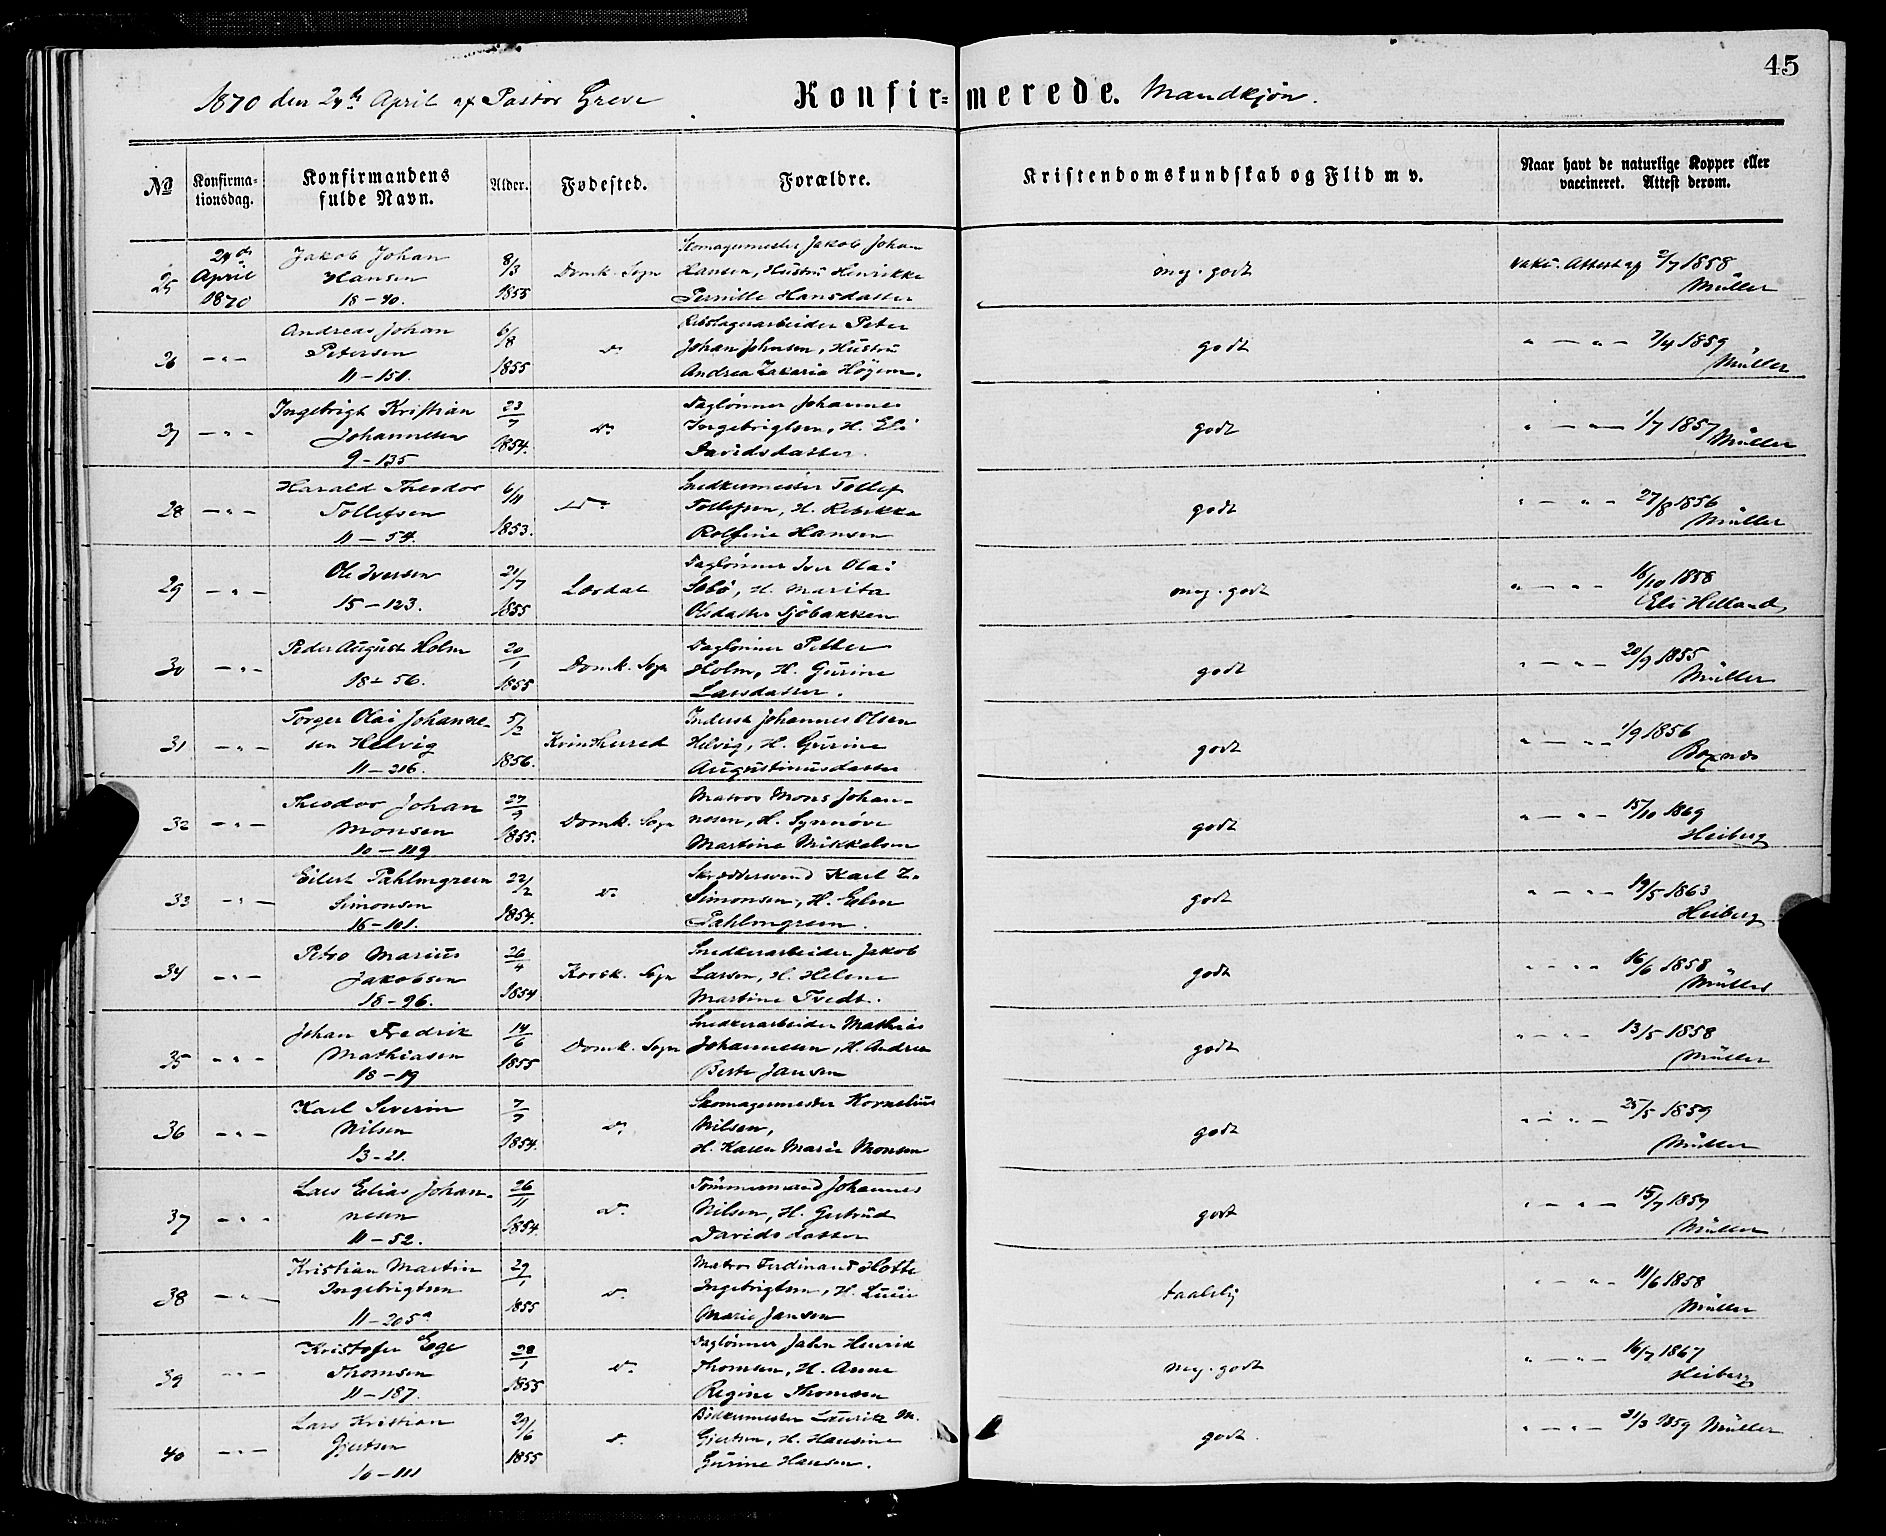 45
1870 den 24de April af Pastor Greve Konfirmerede. Mandkjøn.
№ Konfirmationsdag. Konfirmandens fulde Navn. Alder. Fødested. Forældre. Kristendomskundskab og Flid m v. Naar havt de naturlige Kopper eller vaccineret. Attest derom.
25 24de April 1870 Jakob Johan Hansen 18-40. 8/3 1855 Domk. Sogn Skomagermester Jakob Johan Hansen, Hustru Henrikke Pernille Hansdatter meg. godt Vakc. Attest af 2/7 1858 Müller
26 -"- Andreas Johan Petersen 11-151. 6/8 1855 do Rebslagerarbeider Peter Johan Johnsen, Hustru Andrea Zakaria godt " - " - 7/4 1859 Müller
27 -"- Ingebrigt Kristian Johannesen 9-135 23/7 1854. do Daglønner Johannes Ingebrigtsen, H. Eli Davidsdatter. godt " - " - 1/7 1857 Müller
28 -"- Harald Theodor Tollefsen 11-54. 6/11 1853. do Snedkermester Tollef Tollefsen, H. Rebekka Rolfine Hansen godt " - " - 27/8 1856 Müller
29 -"- Ole Iversen 15-123. 21/7 1855 Lærdal Daglønner Iver Olai Sebø, H. Marita Olsdatter Sjøbakken meg. godt " - " - 16/10 1858 Eli Helland
30 -"- Peder August Holm 18-56. 20/1 1855 Domk. Sogn Daglønner Petter Holm, H. Gurine Larsdatter. godt " - " - 20/9 1855 Müller
31 -"- Torger Olai Johannesen Helvig 11-216. 5/2 1856. Kvindherred Inderst Johannes Olsen Helvig, H. Gurine Augustinusdatter godt " - " - 1/9 1856
32 -"- Theodor Johan Monsen 10-119 27/7 1855. Domk. Sogn Matros Mons Johannesen, H. Synnøve Martine Mikkelsen godt " - " - 15/10 1869 Heiberg
33 -"- Eilert Pahlmgreen Simonsen 16-101. 22/2 1854. do Skræddersvend Karl Z. Simonsen, H. Elen Pahlmgreen. godt " - " - 19/5 1863 Heiberg
34 -"- Petro Marius Jakobsen 18-96. 26/4 1854 Korsk. Sogn Snedkerarbeider Jakob Larsen, H. Helene Martine Tvedt. godt " - " - 16/6 1858 Müller
35 -"- Johan Fredrik Mathiasen 18-19 14/6 1855 Domk. Sogn Snedkerarbeider Mathias Johannesen, H. Andrea Berte Jansen godt " - " - 13/5 1858 Müller
36 -"- Karl Severin Nilsen 13-21. 7/7 1854. do Skomagermester Kornelius Nilsen, H. Karen Marie Monsen godt " - " - 25/5 1859 Müller
37 -"- Lars Elias Johannesen 11-52. 26/11 1854. do Tømmermand Johannes Nilsen, H. Gertrud Davidsdatter godt " - " - 15/7 1857 Müller
38 -"- Kristian Martin Ingebrigtsen 11-205a 29/1 1855 do Matros Ferdinand Holte Ingebrigtsen, H. Lucie Marie Jansen taalelig " - " - 11/6 1858 Müller
39 -"- Kristofer Ege Thomsen 11-187. 28/1 1855 do Daglønner Jahn Henrik Thomsen, H. Anne Regine Thomsen meg. godt " - " - 16/7 1867 Heiberg
40 -"- Lars Kristian Gjertsen 10-111 29/6 1855 do Bødkermester Lauritz M. Gjertsen, H. Hansine Gurine Hansen. godt. " - " - 31/3 1859 Müller